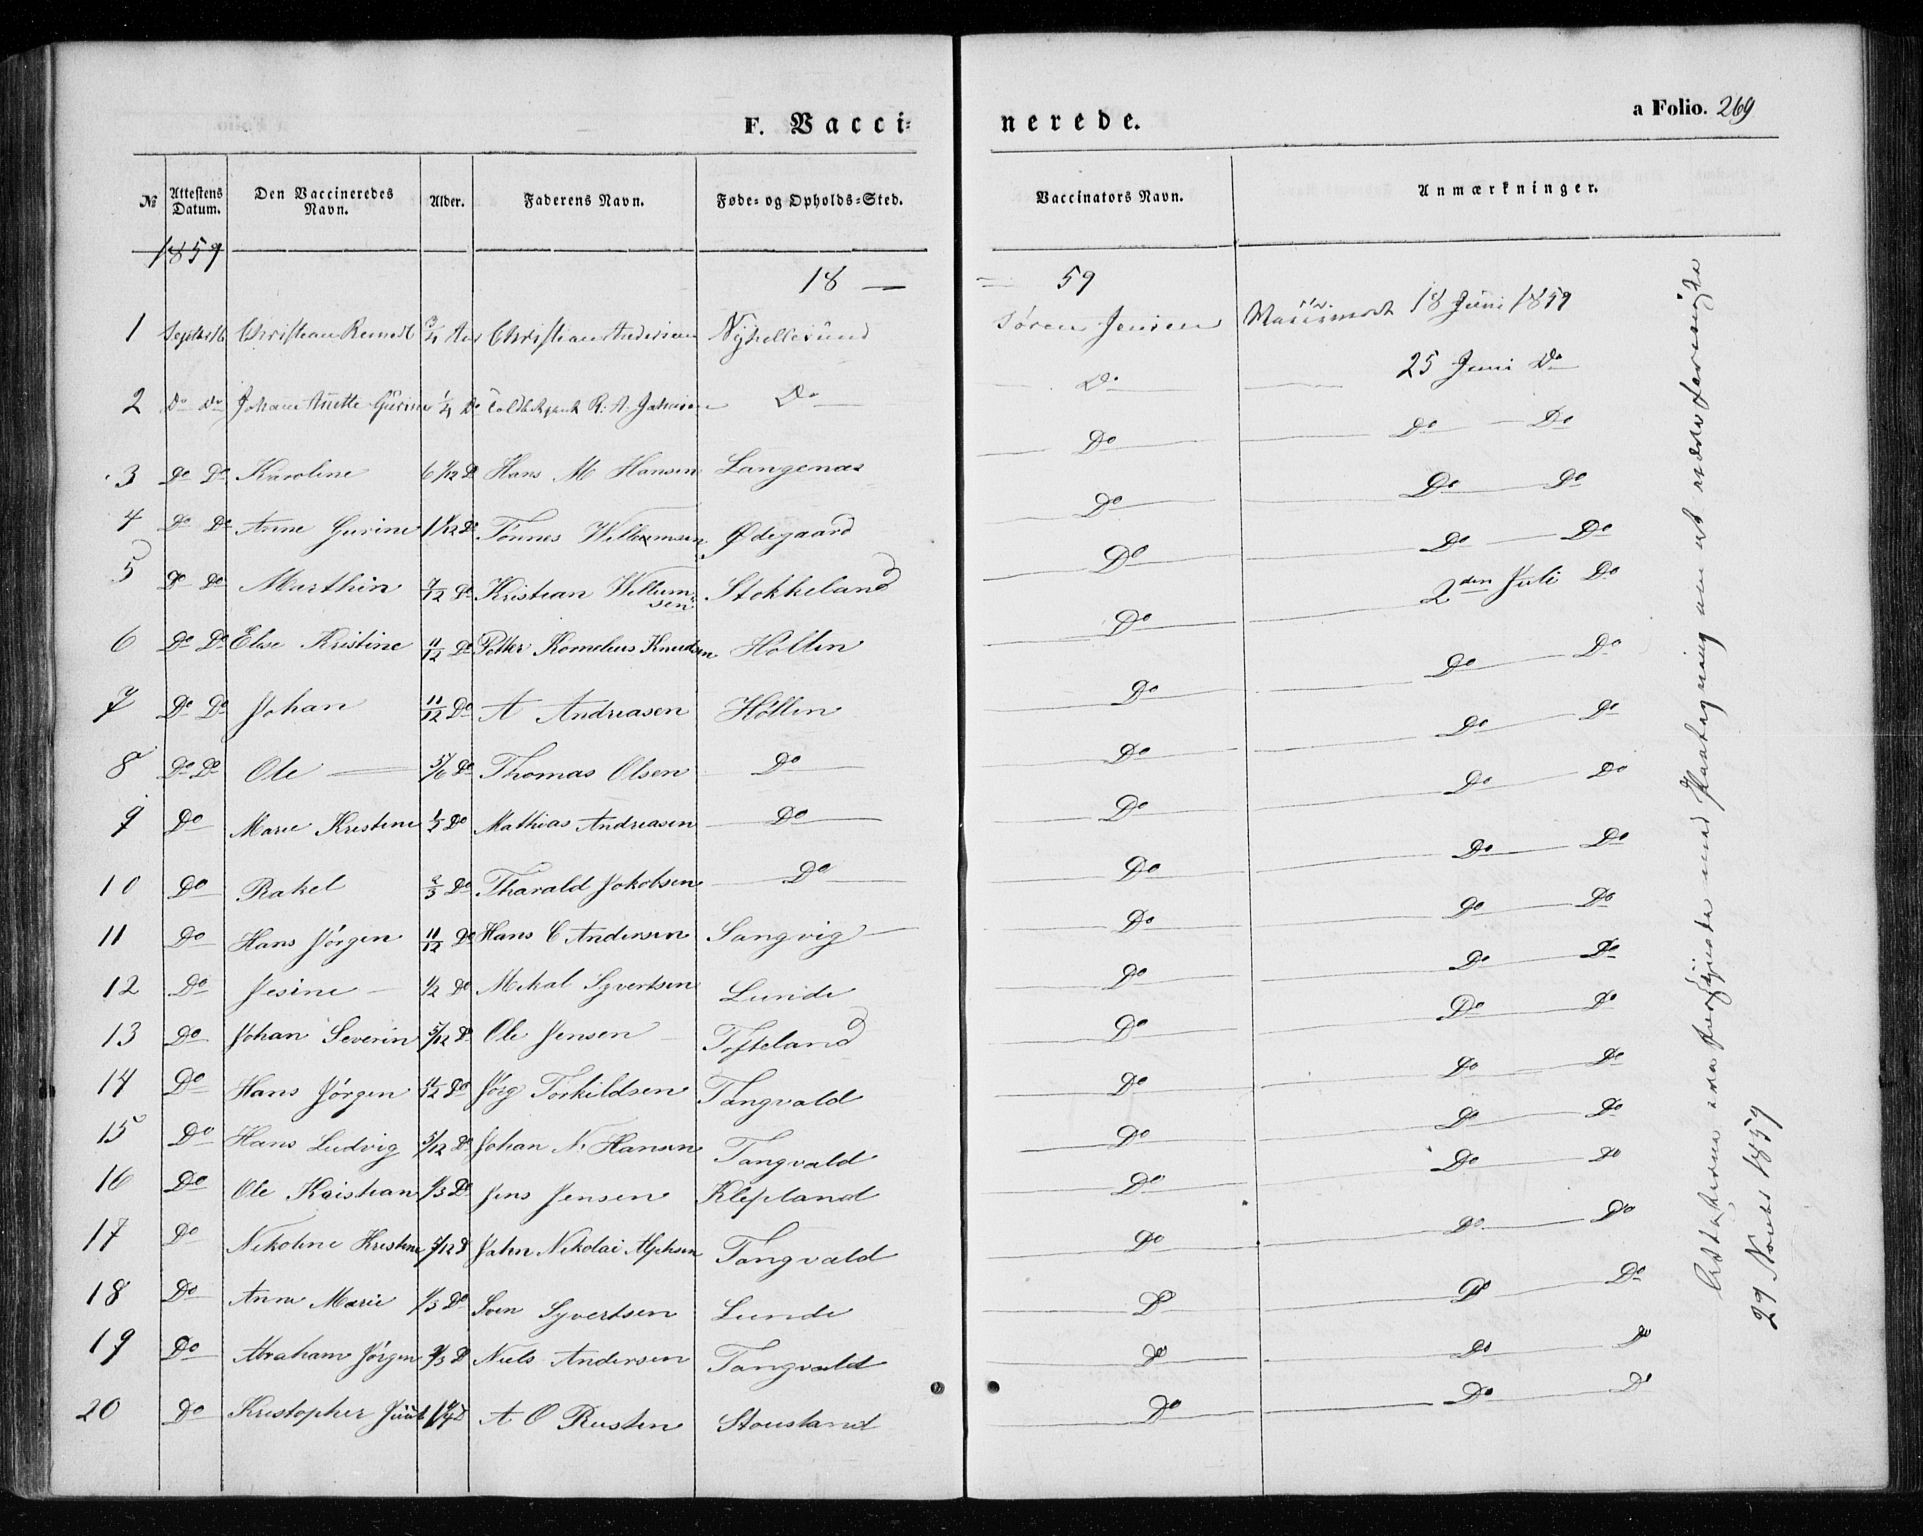 F. Vacci= nerede. a Folio. 269
№ Attestens Datum. Den Vaccineredes Navn. Alder. Faderens Navn. Føde= og Opholds=Sted. Vaccinators Navn. Anmærkninger.
1859
18 — 59
1 Christian 3/4 Aar Christian Andersen Nyhellesund Søren Jensen 18 Juni 1859
2 Do Do 1/4 Do Do Do 25 Juni Do
3 Do Do Karoline 6 1/12 D Hans M Hansen Langenæs Do Do Do
4 Do Do Anne Gurine 1 1/12 Do Tønnes Willumsen Ødegaard Do Do Do
5 Do Do Marthin 7/12 Do Kristian Willumsen Stokkeland Do Do Do
6 Do Do Else Kristine 11/12 Do Petter Kornelius Knudsen Holten Do 2den Juli Do
7 Do Do Johan 11/12 Do A Andreasen Høllen Do Do Do
8 Do Do Ole 5/6 Do Thomas Olsen Do Do Do Do
9 Do Marie Kristine Do Mathias Andreasen Do Do Do Do
10 Do Rakel 2/3 Do Tharald Jakobsen Do Do Do Do
11 Do Hans Jørgen 11/12 Do Hans C Andersen Sangvig Do Do Do
12 Do Jesine 1/2 Do Mekal Syvertsen Lunde Do Do Do
13 Do Johan Severin 5/12 D Ole Jensen Tofteland Do Do Do
14 Do Hans Jørgen 11/12 Do Jørg Torkildsen Tangvald Do Do Do
15 Do Hans Ludvig 5/12 D Johan N. Hansen Tangvald Do Do Do
16 Do Ole Kristian 1/3 Do Jens Jensen Klepland Do Do Do
17 Do Nikoline Kristine 7/12 D Jahn Nikolai Tangvald Do Do Do
18 Do Anne Marie 1/3 Do Sven Syvertsen Lunde D D Do
19 Do Abraham Jørgen 2/3 D Niels Andersen Tangvald Do Do Do
20 Do Kristopher A O Rusten Stousland Do Do D
29 Novbr 1859